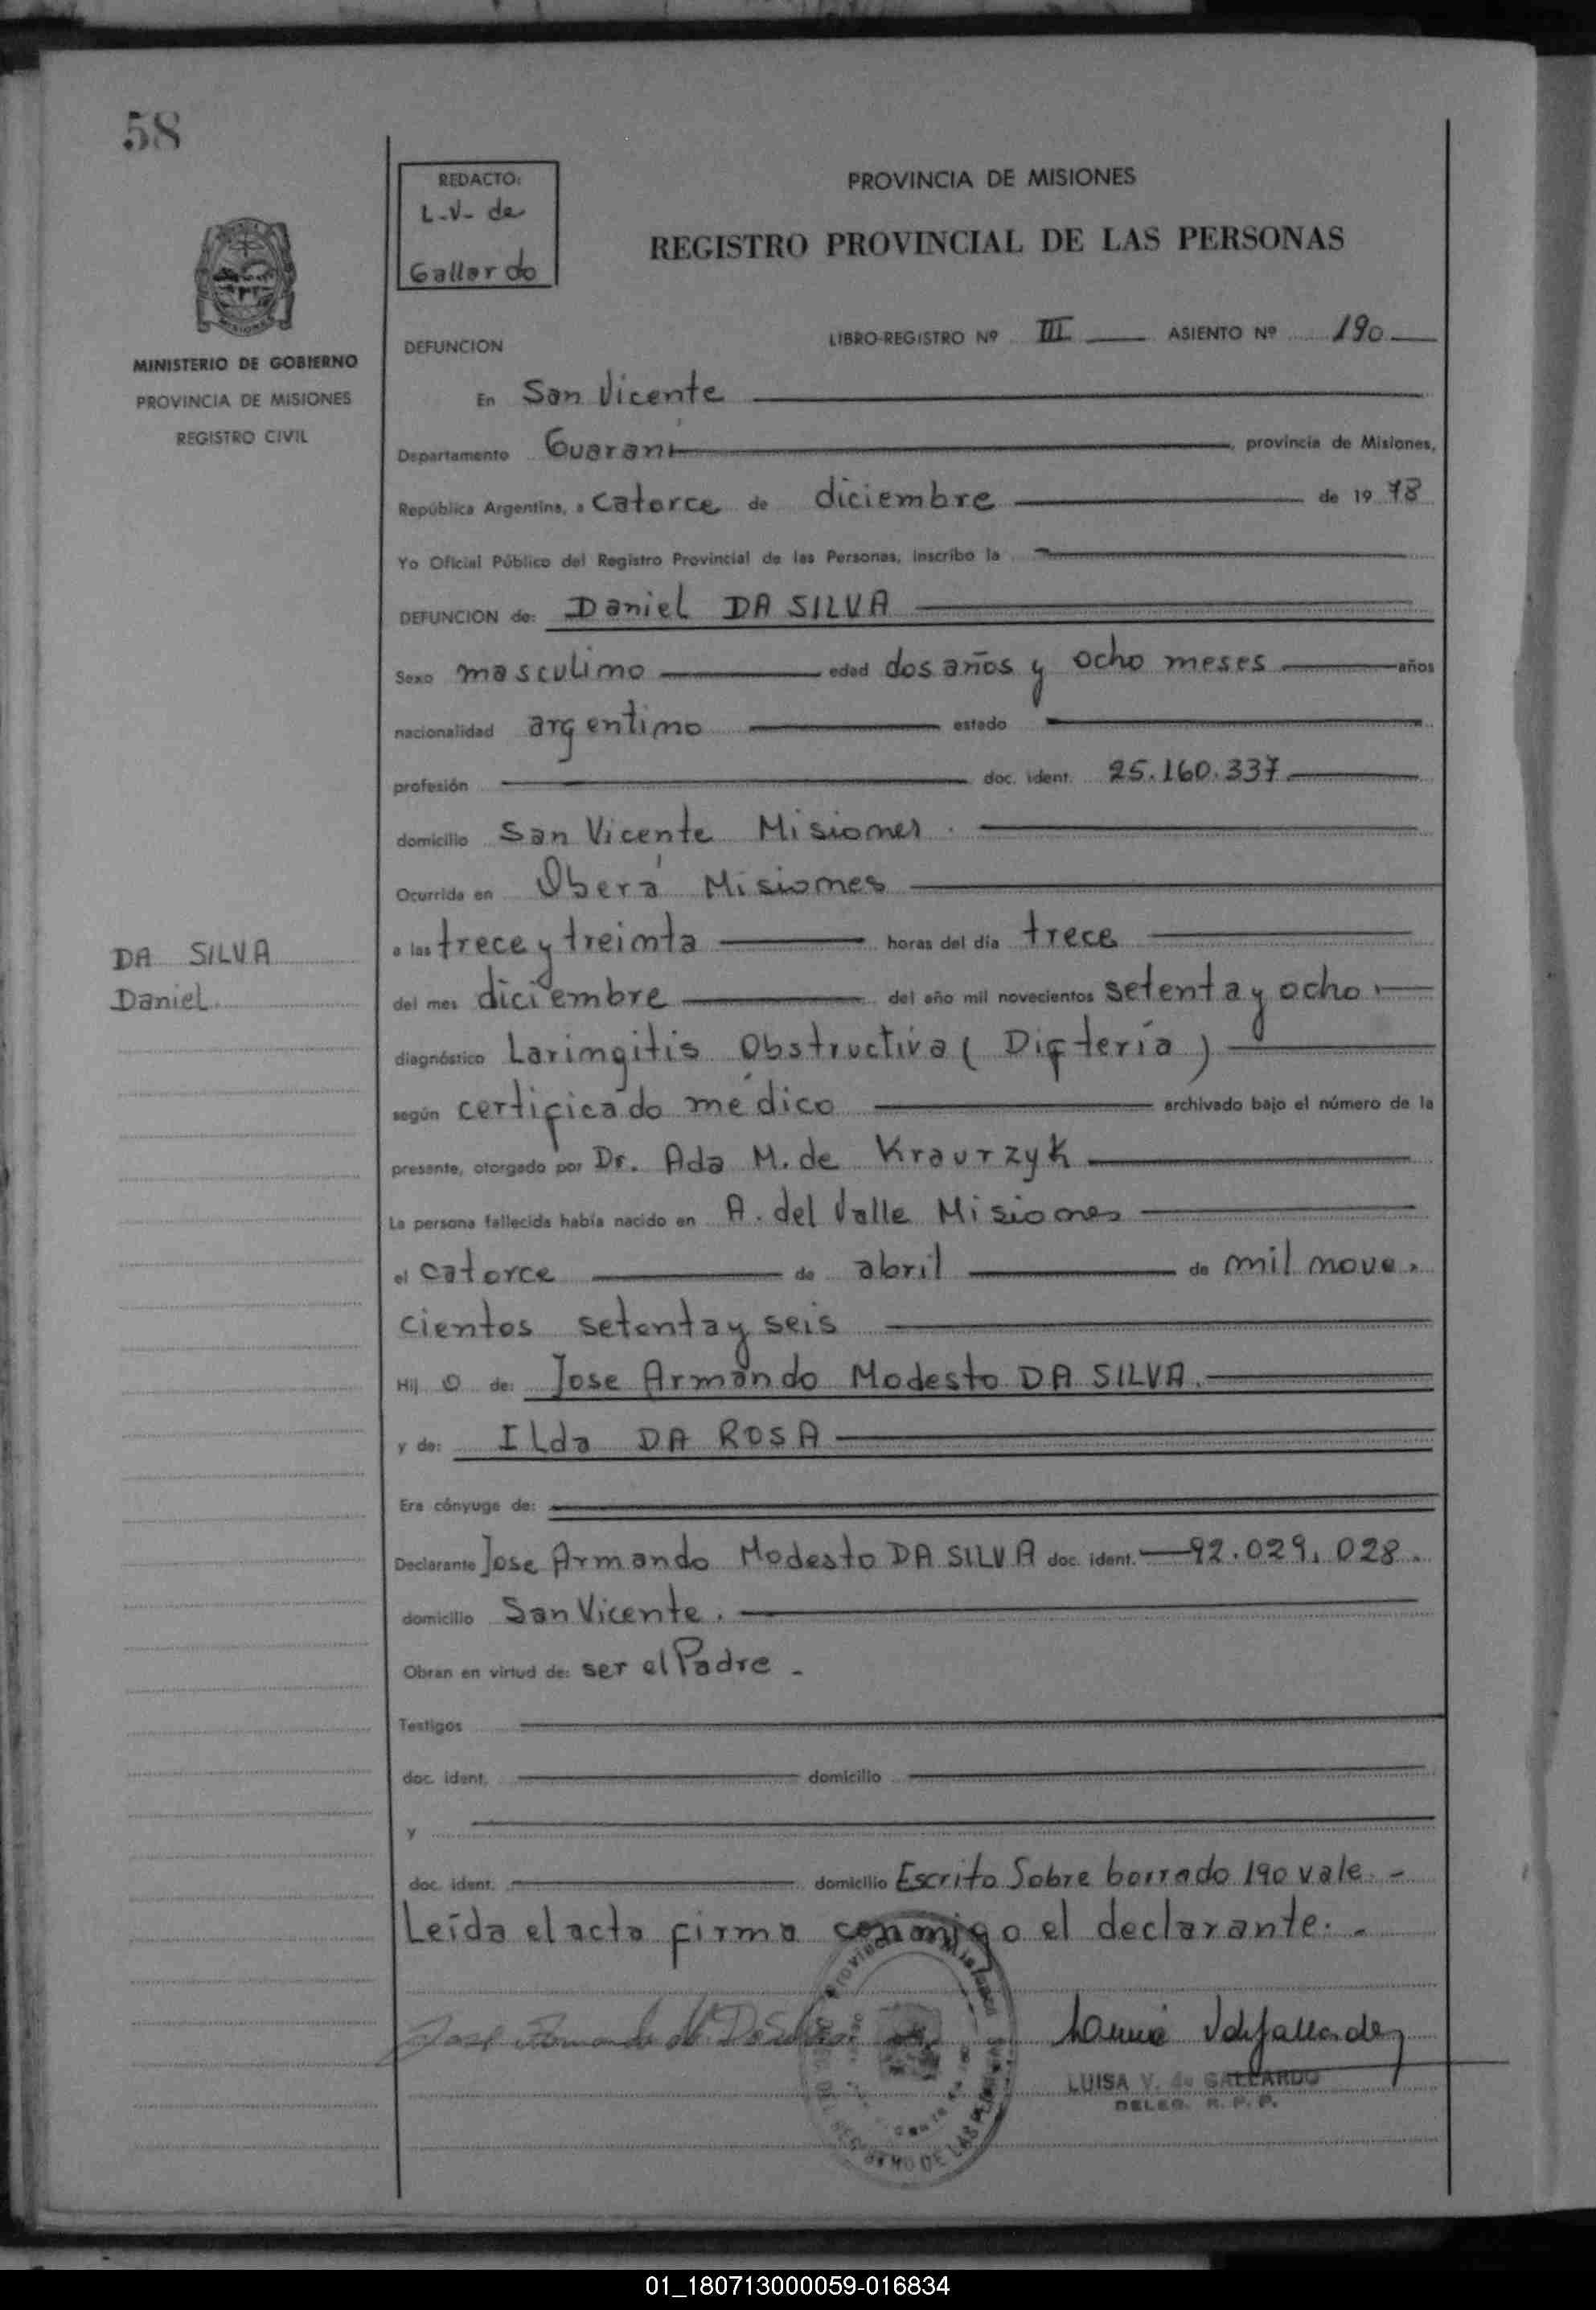 58
REDACTO:
L-V- de
Gallardo
PROVINCIA DE MISIONES
REGISTRO PROVINCIAL DE LAS PERSONAS
MISIONES
MINISTERIO DE GOBIERNO
PROVINCIA DE MISIONES
REGISTRO CIVIL
DEFUNCION
LIBRO-REGISTRO Nº III ASIENTO Nº 190
En San Vicente
Departamento Guarani, provincia de Misiones,
República Argentina, a catorce de diciembre de 19 78
Yo Oficial Público del Registro Provincial de las Personas, inscribo la
DEFUNCION de: Daniel DA SILVA
Sexo masculino edad dos años y ocho meses años
nacionalidad argentino estado
profesión doc. ident. 25.160.337
domicilio San Vicente Misiones.
Ocurrida en Oberá Misiones
a las trece y treinta horas del día trece
DA SILVA
Daniel
del mes diciembre del año mil novecientos setenta y ocho
diagnóstico Laringitis Obstructiva ( Difteria )
según certificado médico archivado bajo el número de la
presente, otorgado por Dr. Ada M. de Kraurzyk
La persona fallecida había nacido en A. del Valle Misiones
el catorce de abril de mil nove.
cientos setenta y seis
Hij o de: Jose Armando Modesto DA SILVA.
y de: Ilda DA ROSA
Era cónyuge de:
Declarante Jose Armando Modesto DA SILVA doc. ident. 92.029.028.
domicilio San Vicente.
Obran en virtud de: ser el Padre -
Testigos
doc. ident. domicilio
y
doc. ident. domicilio Escrito Sobre borrado 190 vale. -
Leída el acta firma conmigo el declarante. -
LUISA V. de GALLARDO
DELEG. R. P. P.
01_180713000059-016834